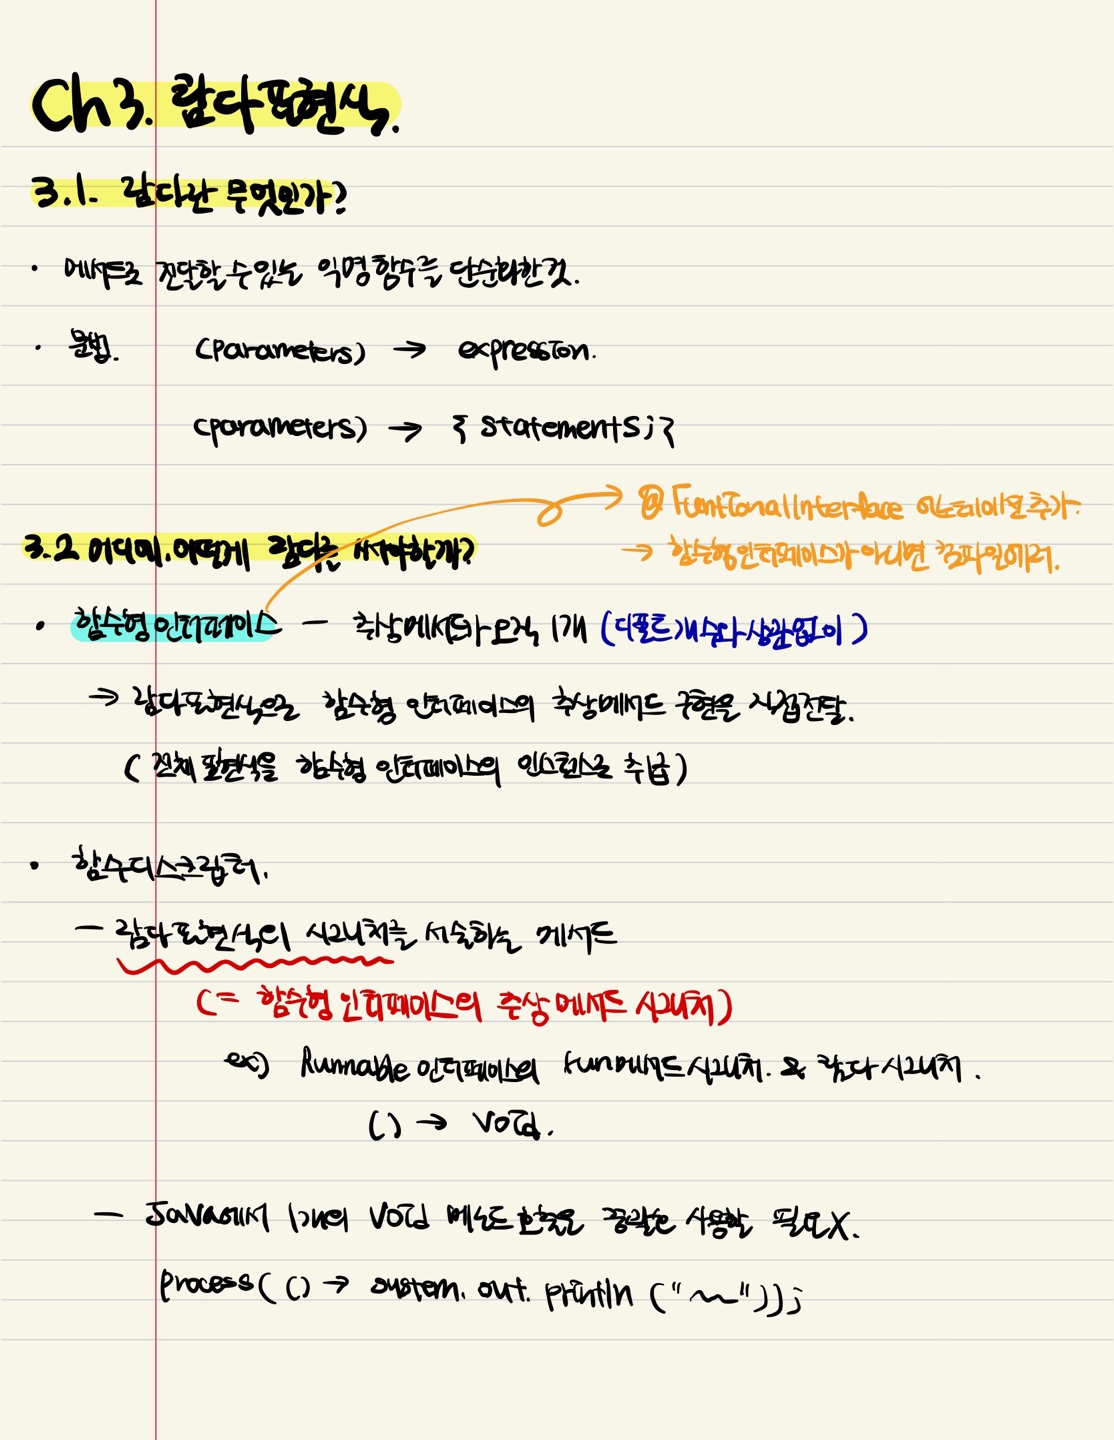 Ch 3. 람다 표현식.
3.1. 람다란 무엇인가?
· 메서드로 전달할 수 있는 익명 함수를 단순화한 것.
· 문법. (parameters) → expression.
(parameters) → { statements; }
@FuntionalInterface 어노테이션 추가.
→ 함수형 인터페이스가 아니면 컴파일에러.
3.2 어디에, 어떻게 람다를 써야할까?
· 함수형 인터페이스 - 추상메서드가 오직 1개 (디폴트 개수와 상관없이)
→ 람다 표현식으로 함수형 인터페이스의 추상메서드 구현을 직접전달.
( 전체 표현식을 함수형 인터페이스의 인스턴스로 취급 )
· 함수 디스크립터.
- 람다 표현식의 시그니처를 서술하는 메서드
(= 함수형 인터페이스의 추상 메서드 시그니처)
ex) Runnable 인터페이스의 run 메서드 시그니처. & 람다 시그니처.
() → void.
- Java에서 1개의 void 메소드 호출은 중괄호 사용할 필요X.
process( () → system. out. println ("~~"));